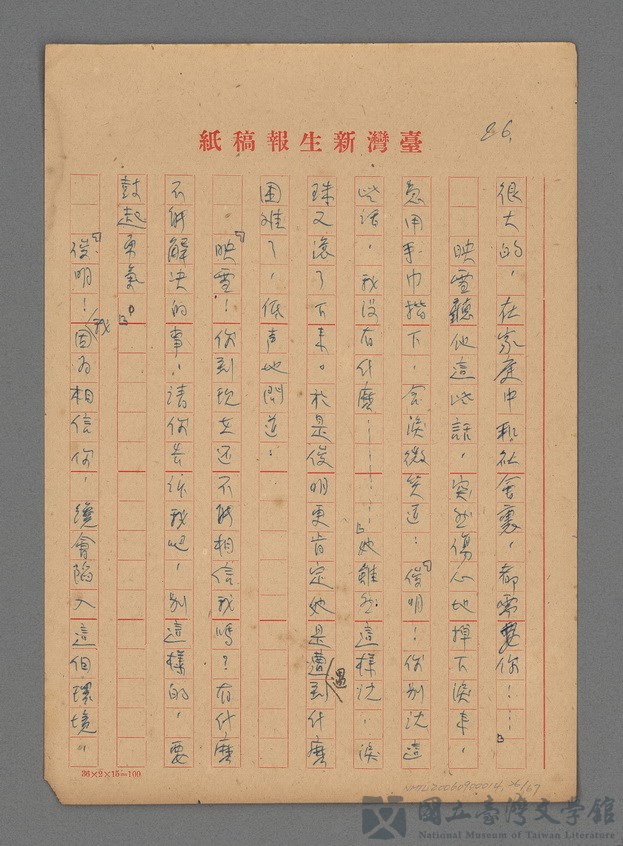 86.
臺灣新生報稿紙
很大的，在家庭中和社會裏，都需要你！……」
映雪聽他這些話，突然傷心地掉下淚來，
急用手巾揩下，含淚微笑道：「俊明！你別说這
些话，我没有什麼………」她雖然這樣说，淚
珠又滾了下來。於是俊明更肯定她是遭遇到什麼
困难了，低声地問道：
「映雪！你到现在还不能相信我嗎？有什麼
不能解决的事，请你告诉我吧，别這樣的，要
鼓起勇氣。」
「俊明！我因为相信你，纔會陷入這個環境。
36×2×15=100
NMTL20060900014, 26/67
國立臺灣文學館
National Museum of Taiwan Literature